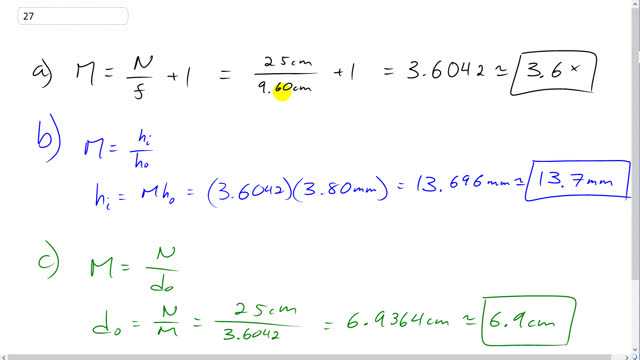 27
a) M = N/f + 1 = 25cm/9.60cm + 1 = 3.6042 ≃ 3.6×
b) M = hᵢ/hₒ
hᵢ = Mhₒ = (3.6042)(3.80mm) = 13.696mm ≃ 13.7mm
c) M = N/dₒ
dₒ = N/M = 25cm/3.6042 = 6.9364cm ≃ 6.9cm